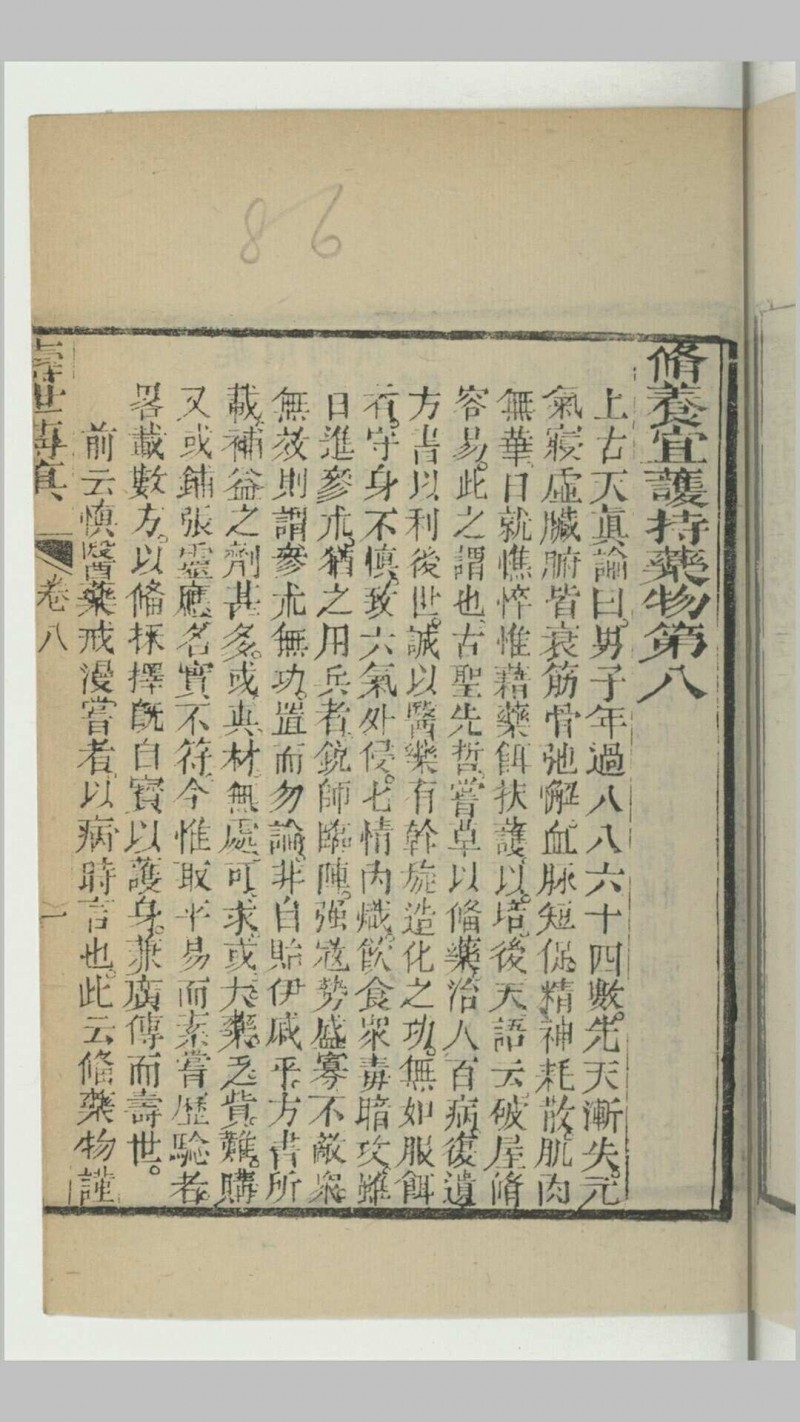 86
脩養宜護持藥物第八
上古天眞論曰。男子年過八八六十四數。先天漸失。元
氣寢虛。臟腑皆衰。筋骨弛懈。血脉短促。精神耗散。肌肉
無華。日就憔悴。惟藉藥餌扶護。以培後天。語云。破屋脩
容易。此之謂也。古聖先哲。嘗草以俻藥。治人百病。復遺
方書以利後世。誠以醫藥有幹旋造化之功。無如服餌
者。守身不慎。致六氣外侵。七情內熾。飲食衆毒暗攻。雖
日進參朮。猶之用兵者。銳師臨陣。强寇勢盛。寡不敵衆。
無效則謂參朮無功。置而勿論。非自貽伊戚乎。方書所
載。補益之劑甚多。或眞材無處可求。或大藥乏貲難購。
又或鋪張靈應。名實不符。今惟取平易而素嘗歷驗者。
畧載數方。以俻採擇。旣自寳以護身。兼廣傳而壽世。
前云慎醫藥戒漫嘗者。以病時言也。此云俻藥物謹
壽世傳眞 卷八 一